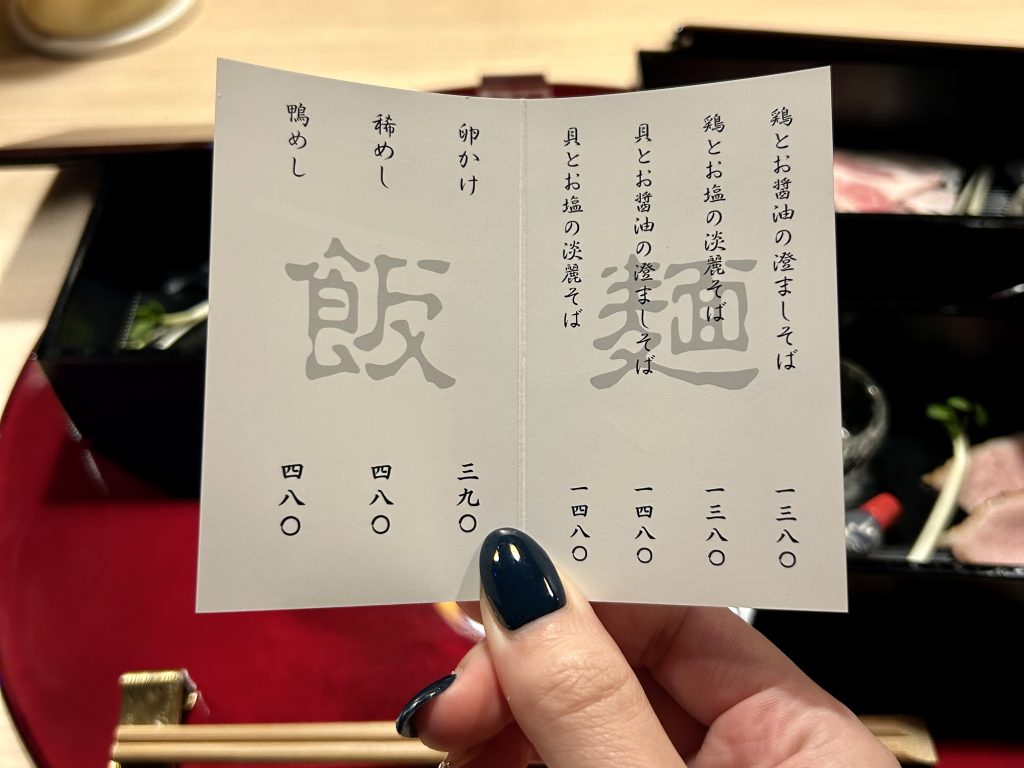 麺
鶏とお醤油の澄ましそば 一三八〇
鶏とお塩の淡麗そば 一三八〇
貝とお醤油の澄ましそば 一四八〇
貝とお塩の淡麗そば 一四八〇
飯
卵かけ 三九〇
稀めし 四八〇
鴨めし 四八〇